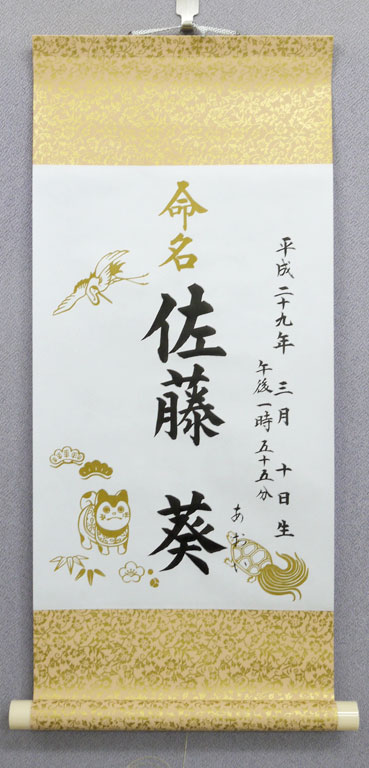 命名
平成二十九年 三月 十日生
午後一時 五十五分
佐藤 葵
あおい